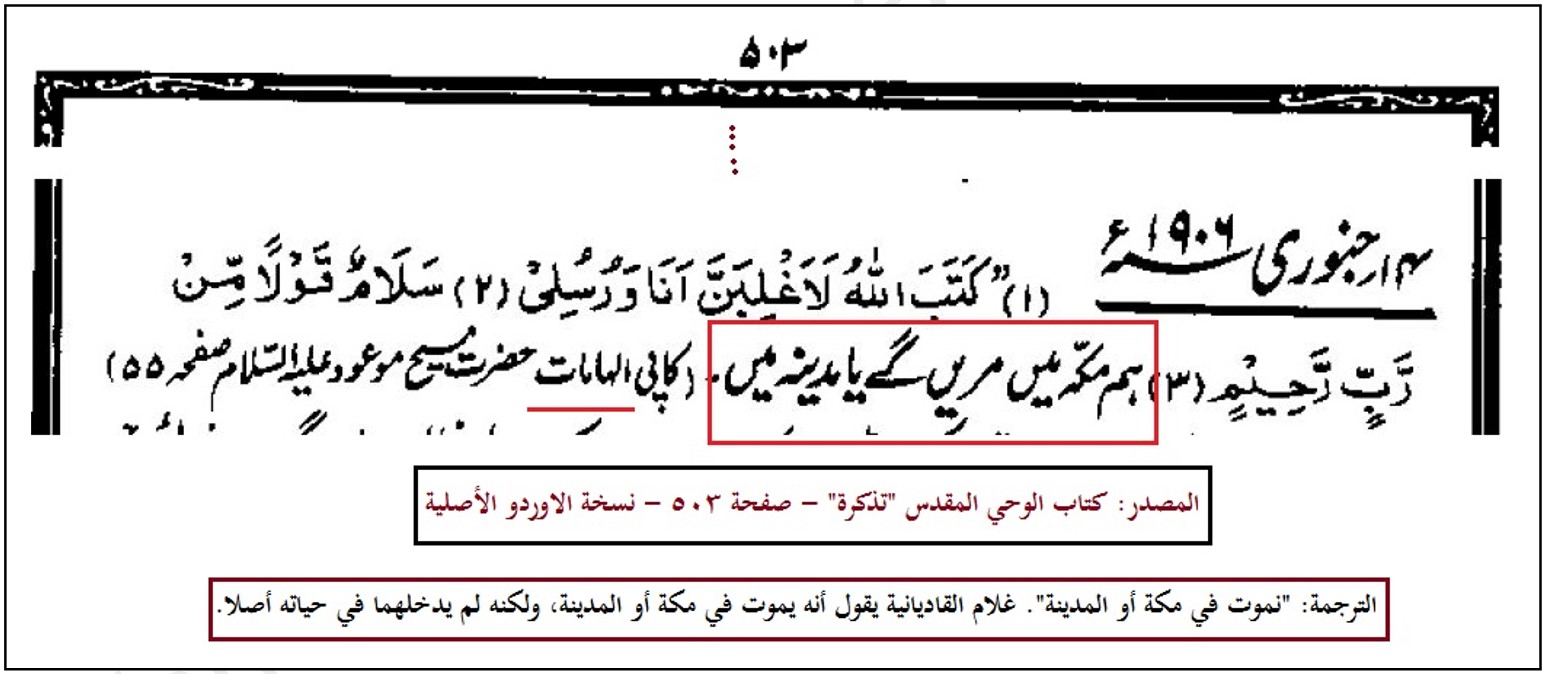 ۵۰۳
۱۴؍جنوری ۱۹۰۶ء
(۱) "كَتَبَ اللّٰهُ لَاَغْلِبَنَّ اَنَا وَرُسُلِیْ (۲) سَلَامٌ قَوْلًا مِّنْ
رَّبٍّ رَّحِیْمٍ (۳) ہم مکّہ میں مریں گے یا مدینہ میں۔ (کاپی الہامات حضرت مسیح موعود علیہ السّلام صفحہ ۵۵)
المصدر: كتاب الوحي المقدس "تذكرة" – صفحة ٥٠٣ – نسخة الاوردو الأصلية
الترجمة: "نموت في مكة أو المدينة". غلام القاديانية يقول أنه يموت في مكة أو المدينة، ولكنه لم يدخلهما في حياته أصلا.